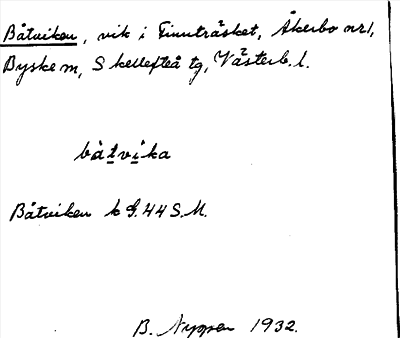 Båtviken, vik i Finnträsket, Åkerbo nr 1,
Byske m, Skellefteå tg, Västerb. l.
båtvika
Båtviken k G. 44 S.M.
B. Nygren 1932.